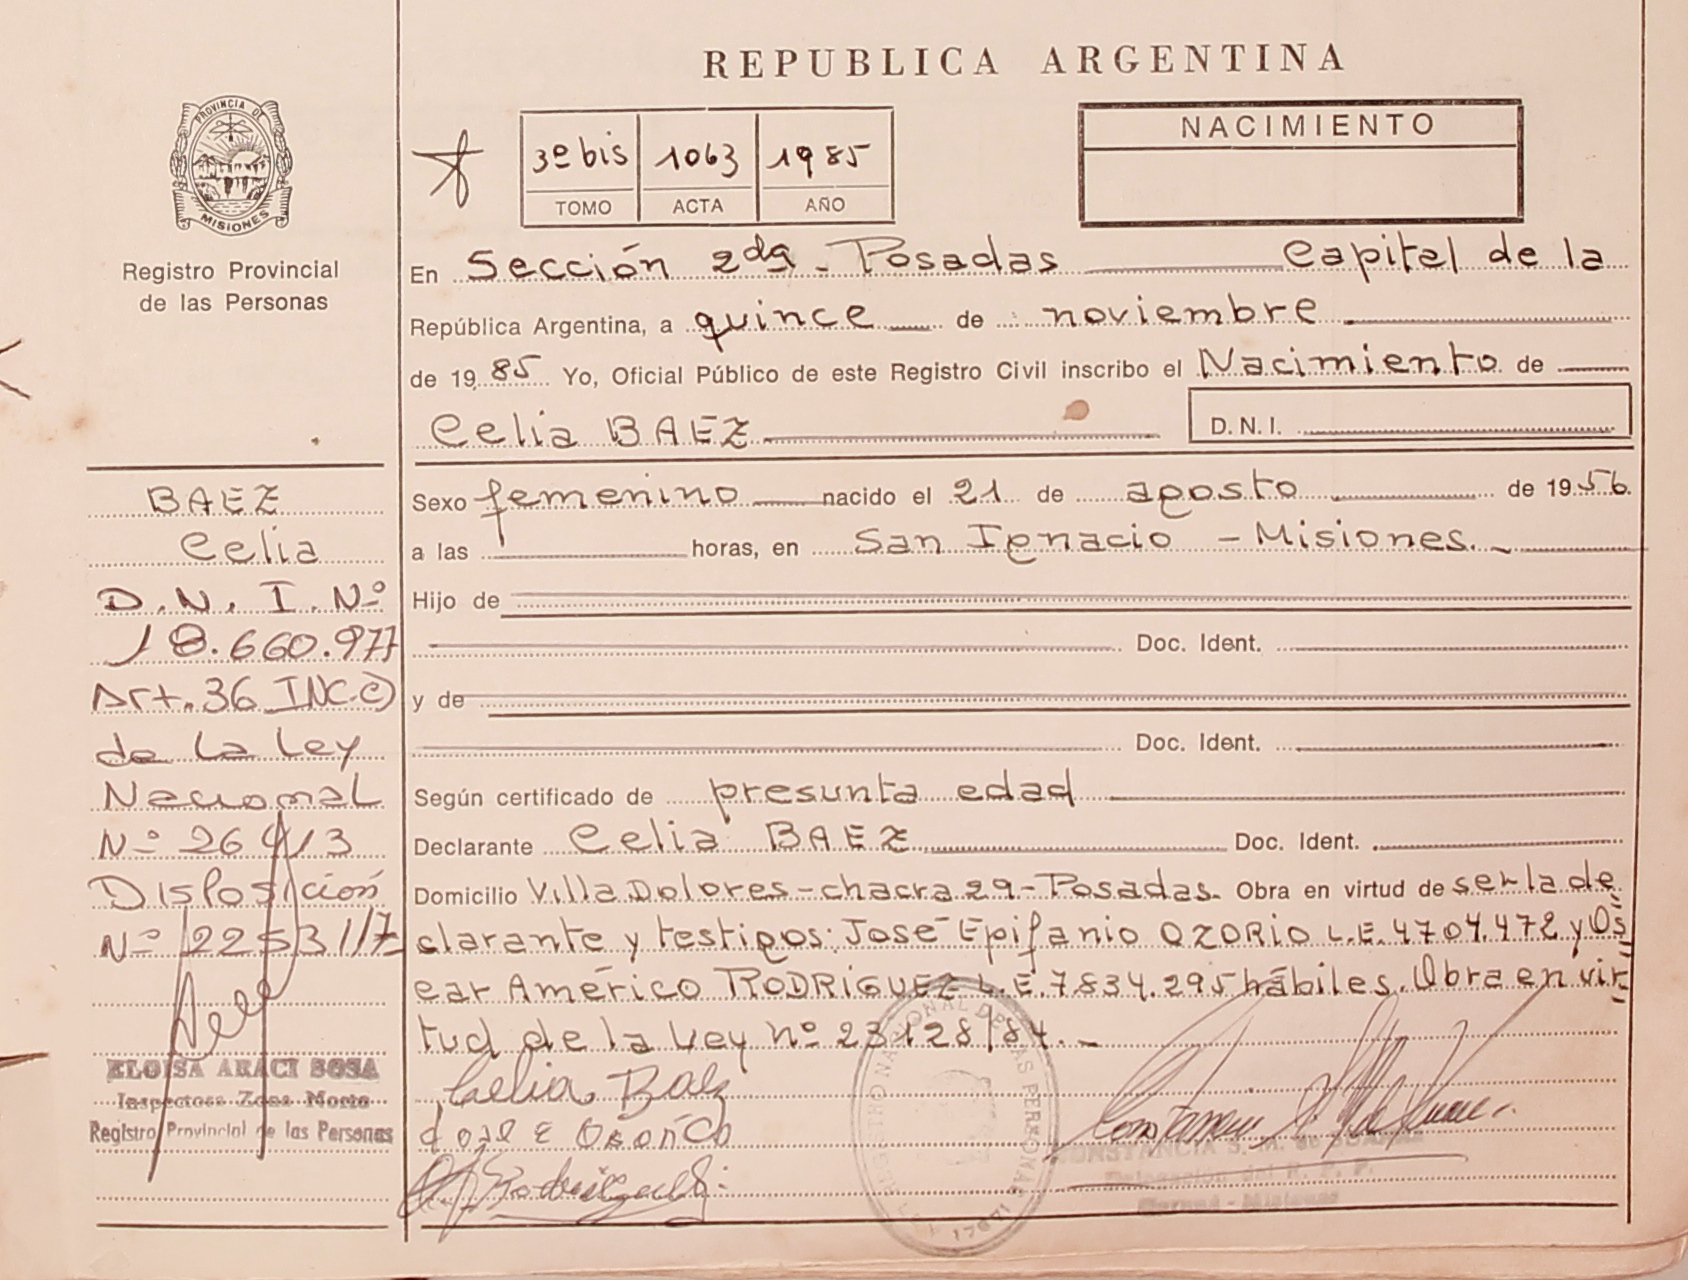 REPUBLICA ARGENTINA
PROVINCIA DE
MISIONES
Registro Provincial
de las Personas
3º bis 1063 1985
TOMO ACTA AÑO
NACIMIENTO
En Sección 2da - Posadas Capital de la
República Argentina, a quince de noviembre
de 1985 Yo, Oficial Público de este Registro Civil inscribo el Nacimiento de
Celia BAEZ D.N.I.
Sexo femenino nacido el 21 de agosto de 1956.
a las horas, en San Ignacio - Misiones.
Hijo de
Doc. Ident.
y de
Doc. Ident.
Según certificado de presunta edad
Declarante Celia BAEZ Doc. Ident.
Domicilio Villa Dolores - chacra 29 - Posadas. Obra en virtud de ser la de
clarante y testigos: José Epifanio OZORIO L.E. 4704.472 y Os
car Américo RODRIGUEZ L.E. 7834.295 hábiles. Obra en vir
tud de la Ley nº 23128/84. -
Celia Baez
José E Osorio
BAEZ
Celia
D.N.I. Nº
18.660.977
Art. 36 INC. C)
de la Ley
Nacional
Nº 26413
Disposición
Nº
ELOISA ARACI SOSA
Inspectora Zona Norte
Registro Provincial de las Personas
REGISTRO NACIONAL DE LAS PERSONAS
CONSTANCIA S. M. de
Delegación del R. P. P.
Misiones